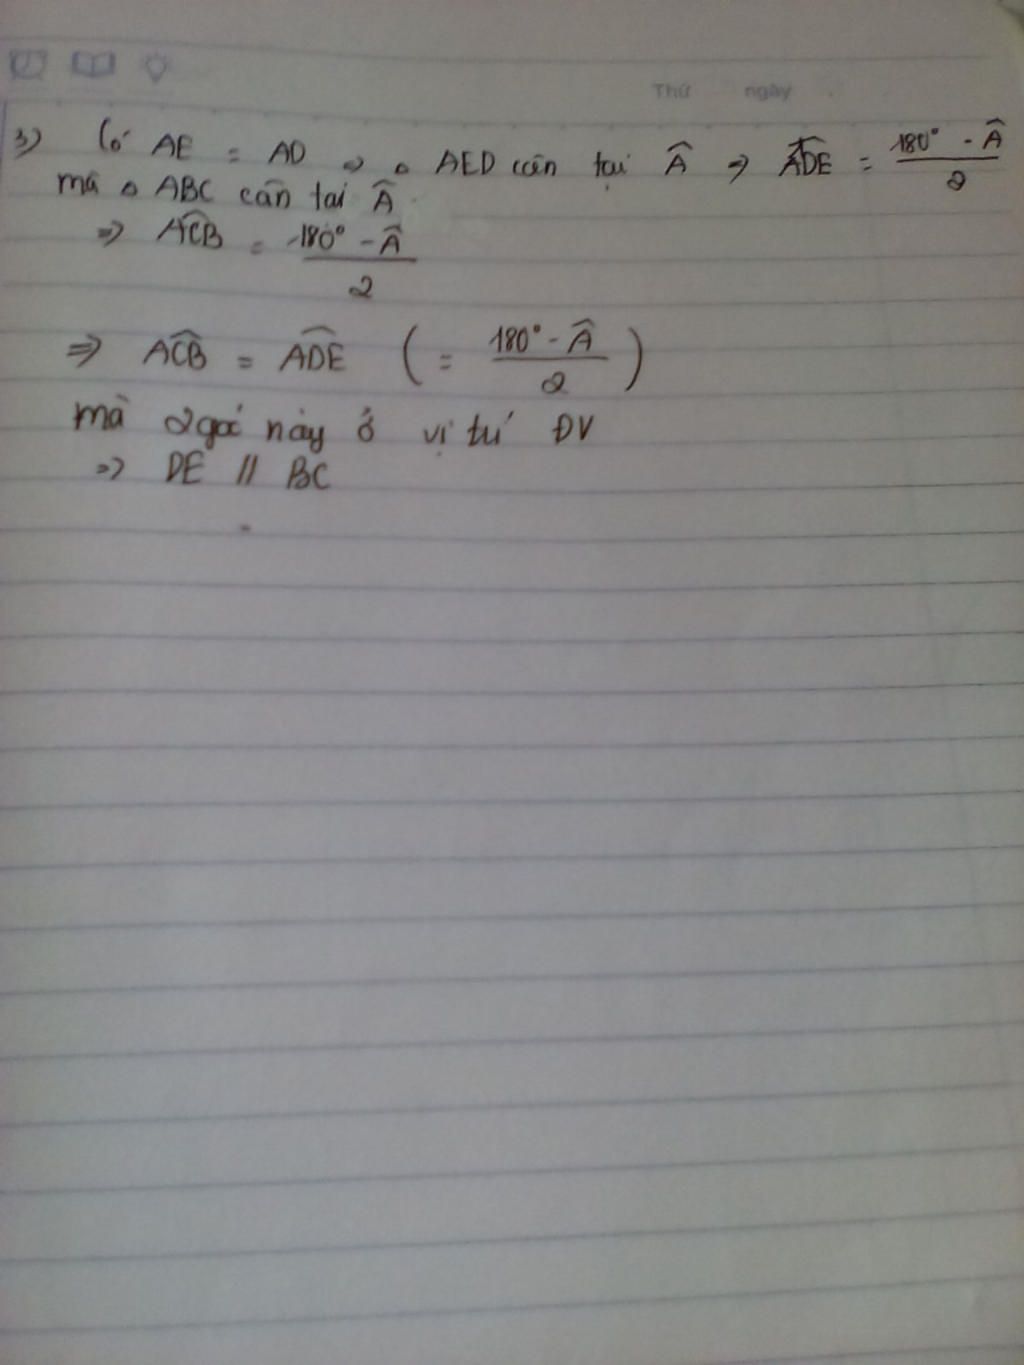 Thứ ngày
3) Có AE = AD => △ AED cân tại Â => \widehat{ADE} = \frac{180° - Â}{2}
mà △ ABC cân tại Â
=> \widehat{ACB} = \frac{180° - Â}{2}
=> \widehat{ACB} = \widehat{ADE} ( = \frac{180° - Â}{2} )
mà 2 góc này ở vị trí ĐV
=> DE // BC